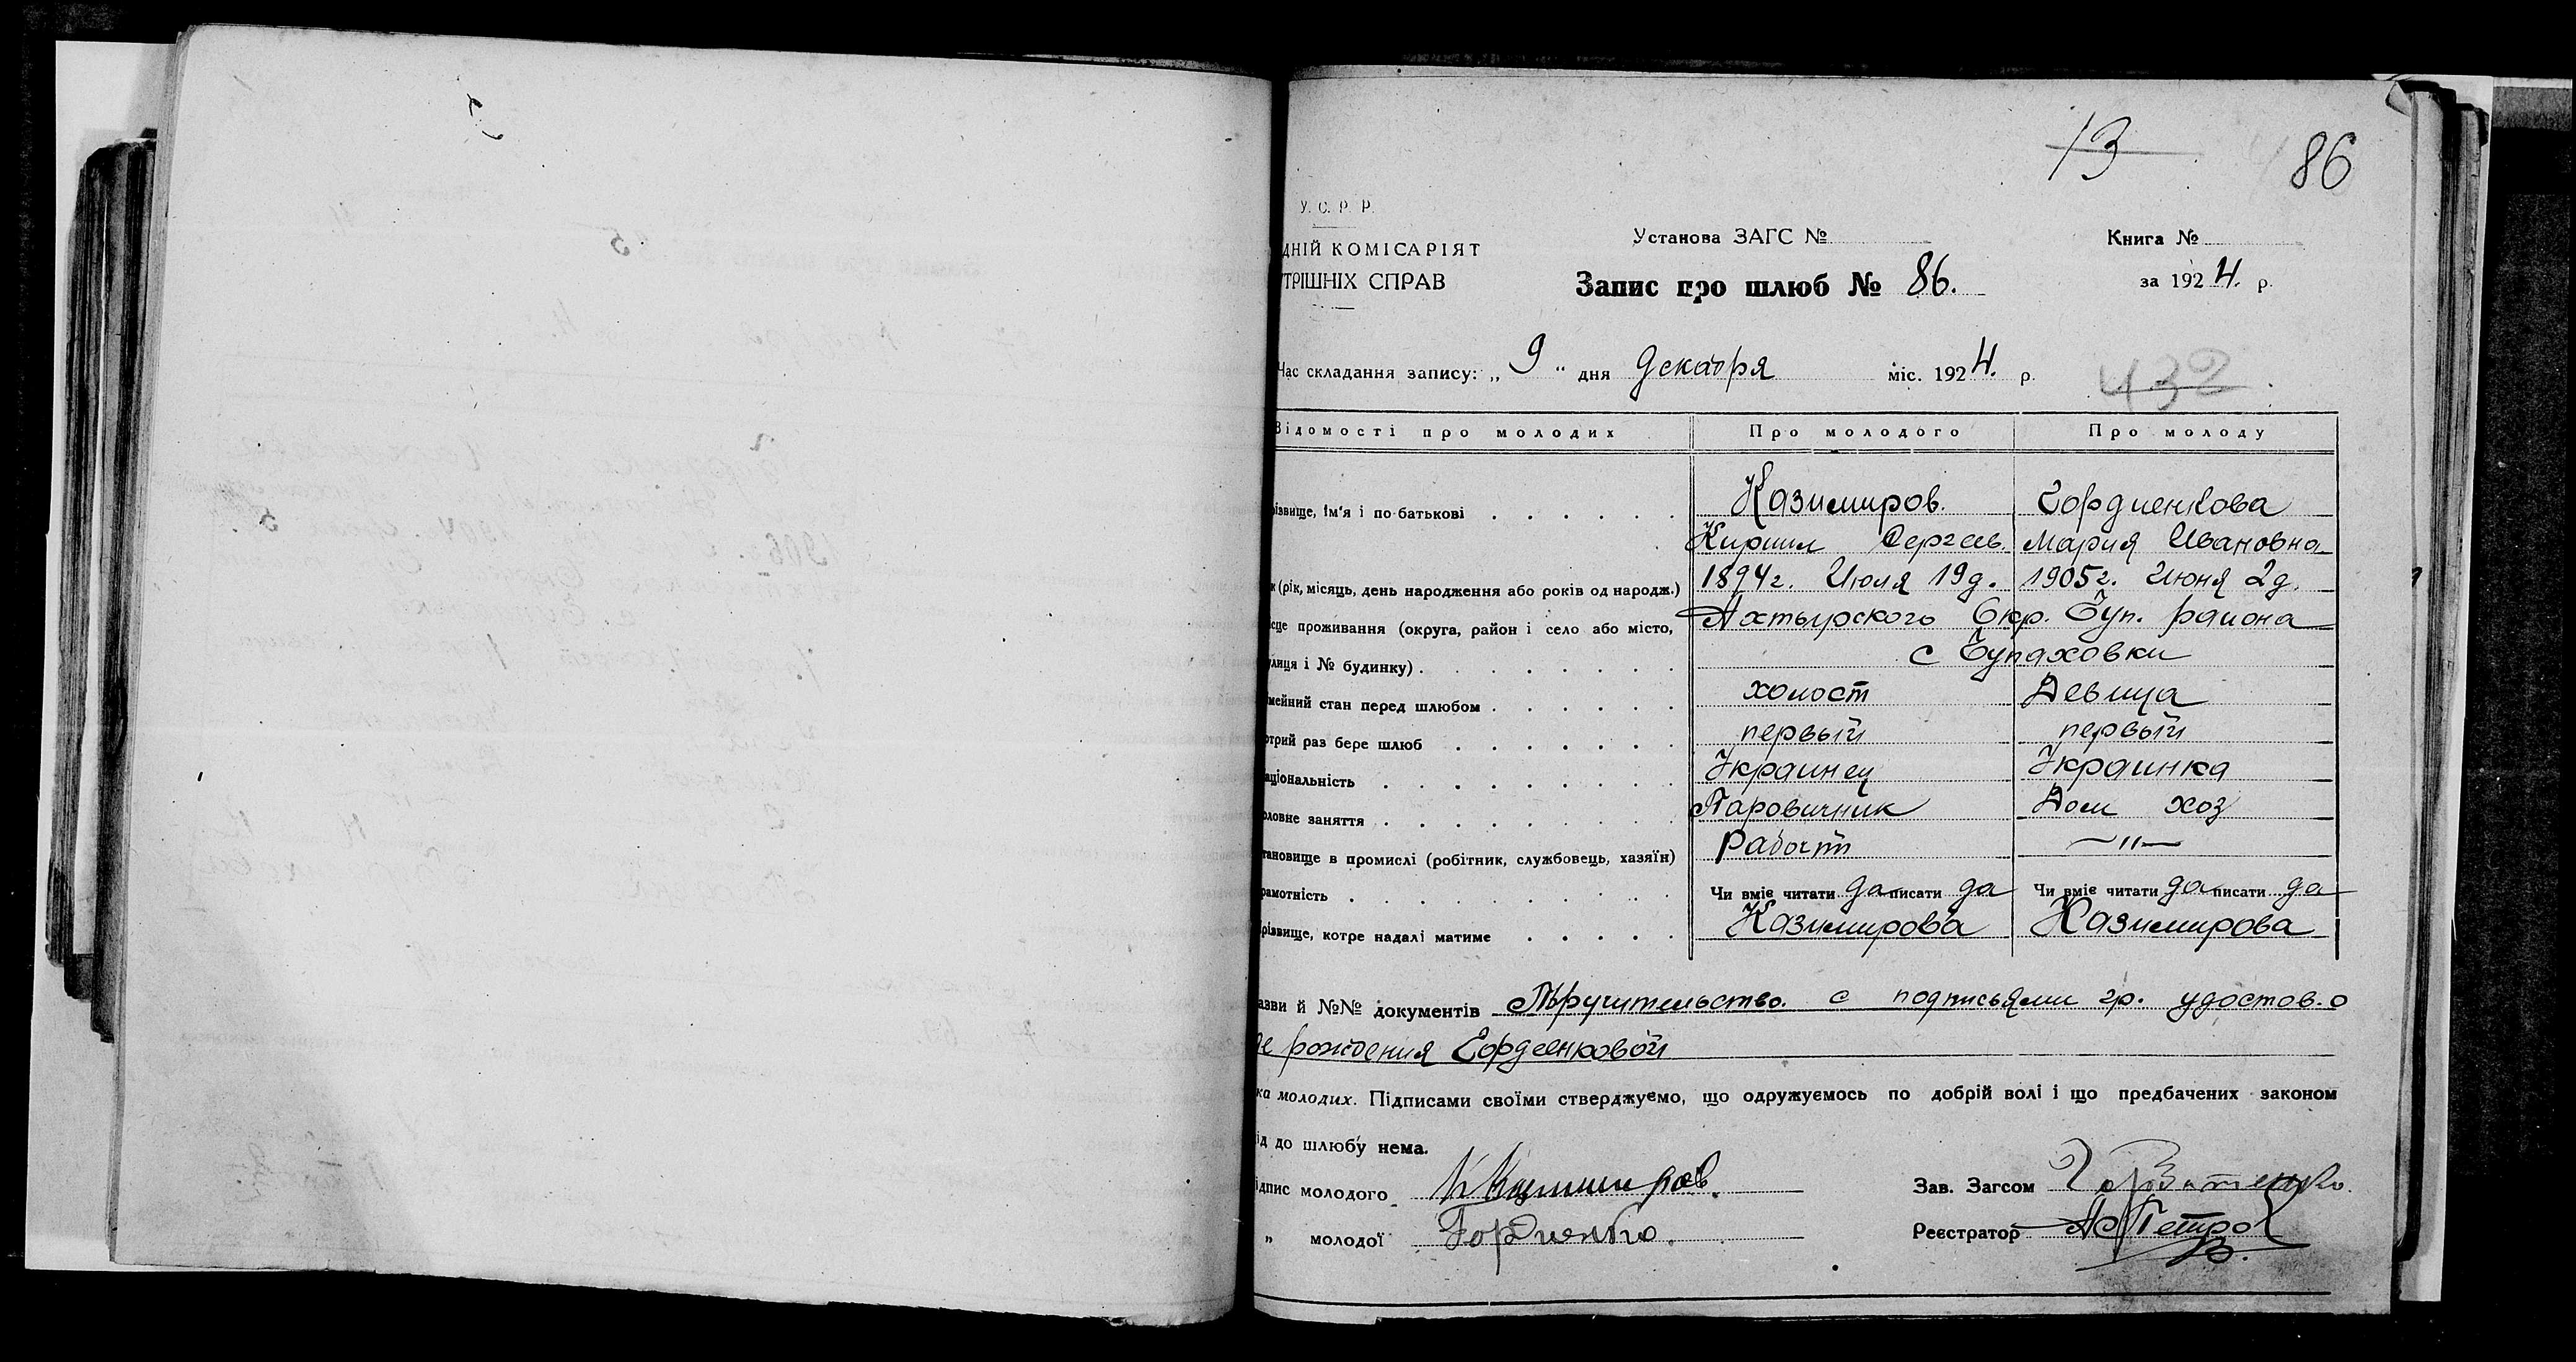 13 86
У. С. Р. Р.
ДНІЙ КОМІСАРІЯТ Установа ЗАГС № Книга №
ТРІШНІХ СПРАВ Запис про шлюб № 86. за 1924. р.
Час складання запису: „ 9 “ дня декабря міс. 1924. р.
432
Відомості про молодих Про молодого Про молоду
різвище, ім'я і по-батькові Казимиров. Гордиенкова
Кирилл Сергеев. Мария Ивановна
к (рік, місяць, день народження або років од народж.) 1894г. Июля 19д. 1905г. Июня 2д.
сце проживання (округа, район і село або місто, Ахтырского Окр. Буп. района
улиця і № будинку) с Чупаховки
мейний стан перед шлюбом холост Девица
отрий раз бере шлюб первый первый
аціональність Украинец Украинка
оловне заняття Паровичник Дом хоз
тановище в промислі (робітник, службовець, хазяїн) Рабочий —"—
рамотність Чи вміє читати да писати да Чи вміє читати да писати да
різвище, котре надалі матиме Казимирова Казимирова
азви й №№ документів Поручительство. с подписями гр. удостов. о
де рождения Гордеенковой
ка молодих. Підписами своїми стверджуємо, що одружуємось по добрій волі і що предбачених законом
ід до шлюбу нема.
ідпис молодого К Казимиров. Зав. Загсом
„ молодої Гордиенко. Реєстратор АПетров.